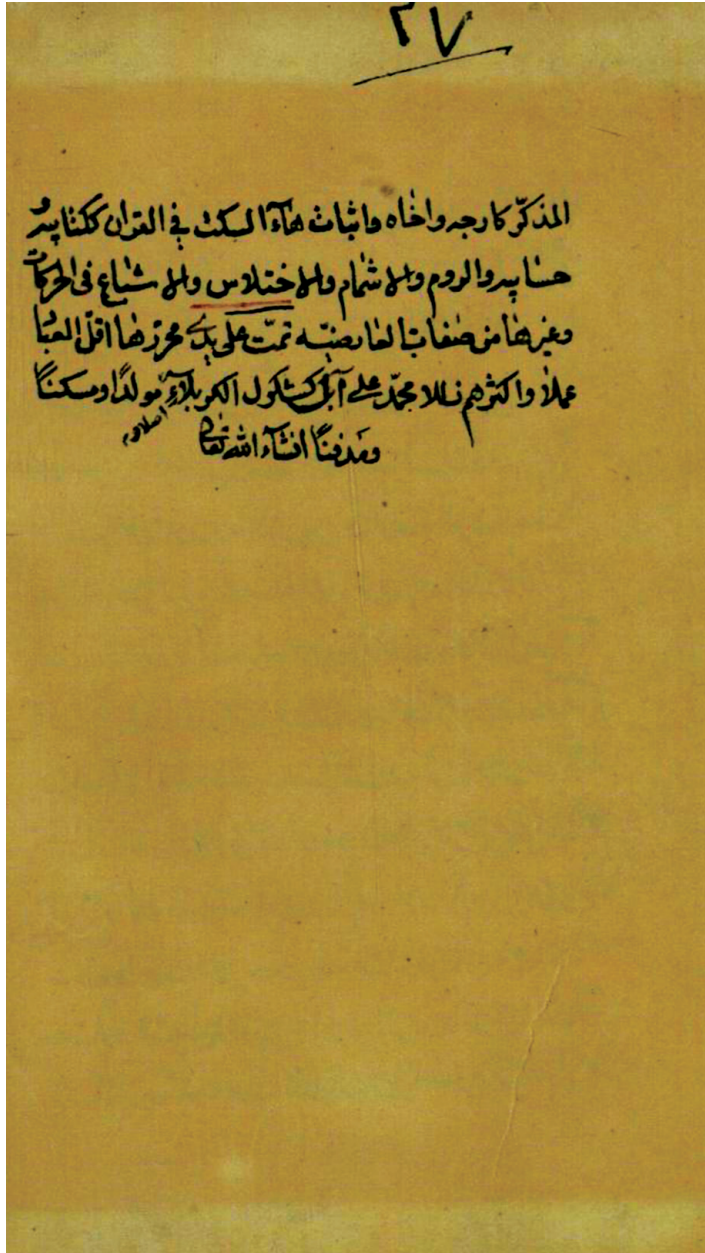 ٢٧
المذكّر كارجه واخاه واثبات هاۤء السكت في القران ككتابيه
حسابيه والروم والاشمام والاختلاس والاشباع فى الحركات
وغيرها من صفاتها العارضيّه تمت على يدي محررها اقلّ العباد
عملاً واكثرهم زللا محمّد علي آل كشكول الكربلاۤئي مولدًا ومسكناً
ومدفنًا انشاۤء الله تعالى